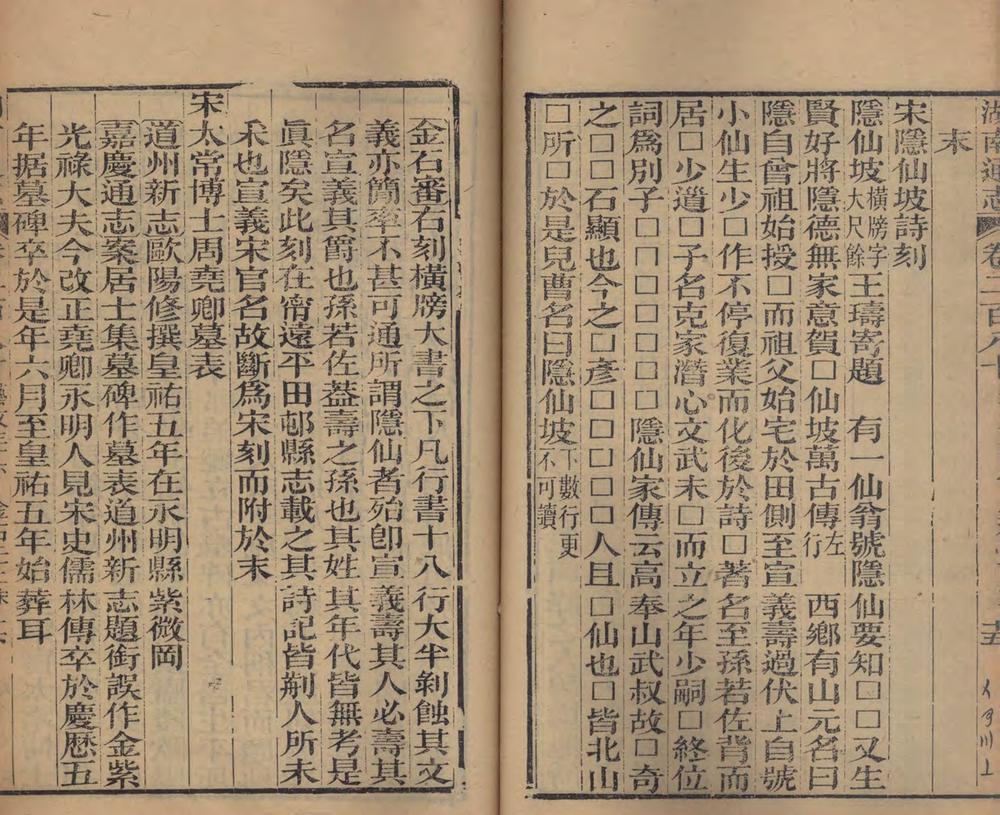 湖南通志 卷二百八十
末
宋隱仙坡詩刻
隱仙坡橫牓字大尺餘王壔寄題 有一仙翁號隱仙要知□□又生
賢好將隱德無家意賀□仙坡萬古傳左行 西鄉有山元名曰
隱自曾祖始授□而祖父始宅於田側至宣義壽過伏上自號
小仙生少□作不停復業而化後於詩□著名至孫若佐背而
居□少遒□子名克家潛心文武未□而立之年少嗣□終位
詞爲別子□□□□□□□隱仙家傳云高奉山武叔故□奇
之□□石顯也今之□彥□□□□□□人且□仙也□皆北山
□所□於是兒曹名曰隱仙坡下數行更不可讀
金石審右刻橫牓大書之下凡行書十八行大半剝蝕其文
義亦簡率不甚可通所謂隱仙者殆卽宣義壽其人必壽其
名宣義其爵也孫若佐葢壽之孫也其姓其年代皆無考是
眞隱矣此刻在甯遠平田邨縣志載之其詩記皆剙人所未
釆也宣義宋官名故斷爲宋刻而附於末
宋太常博士周堯卿墓表
道州新志歐陽修撰皇祐五年在永明縣紫微岡
嘉慶通志案居士集墓碑作墓表道州新志題銜誤作金紫
光祿大夫今改正堯卿永明人見宋史儒林傳卒於慶歷五
年据墓碑卒於是年六月至皇祐五年始葬耳